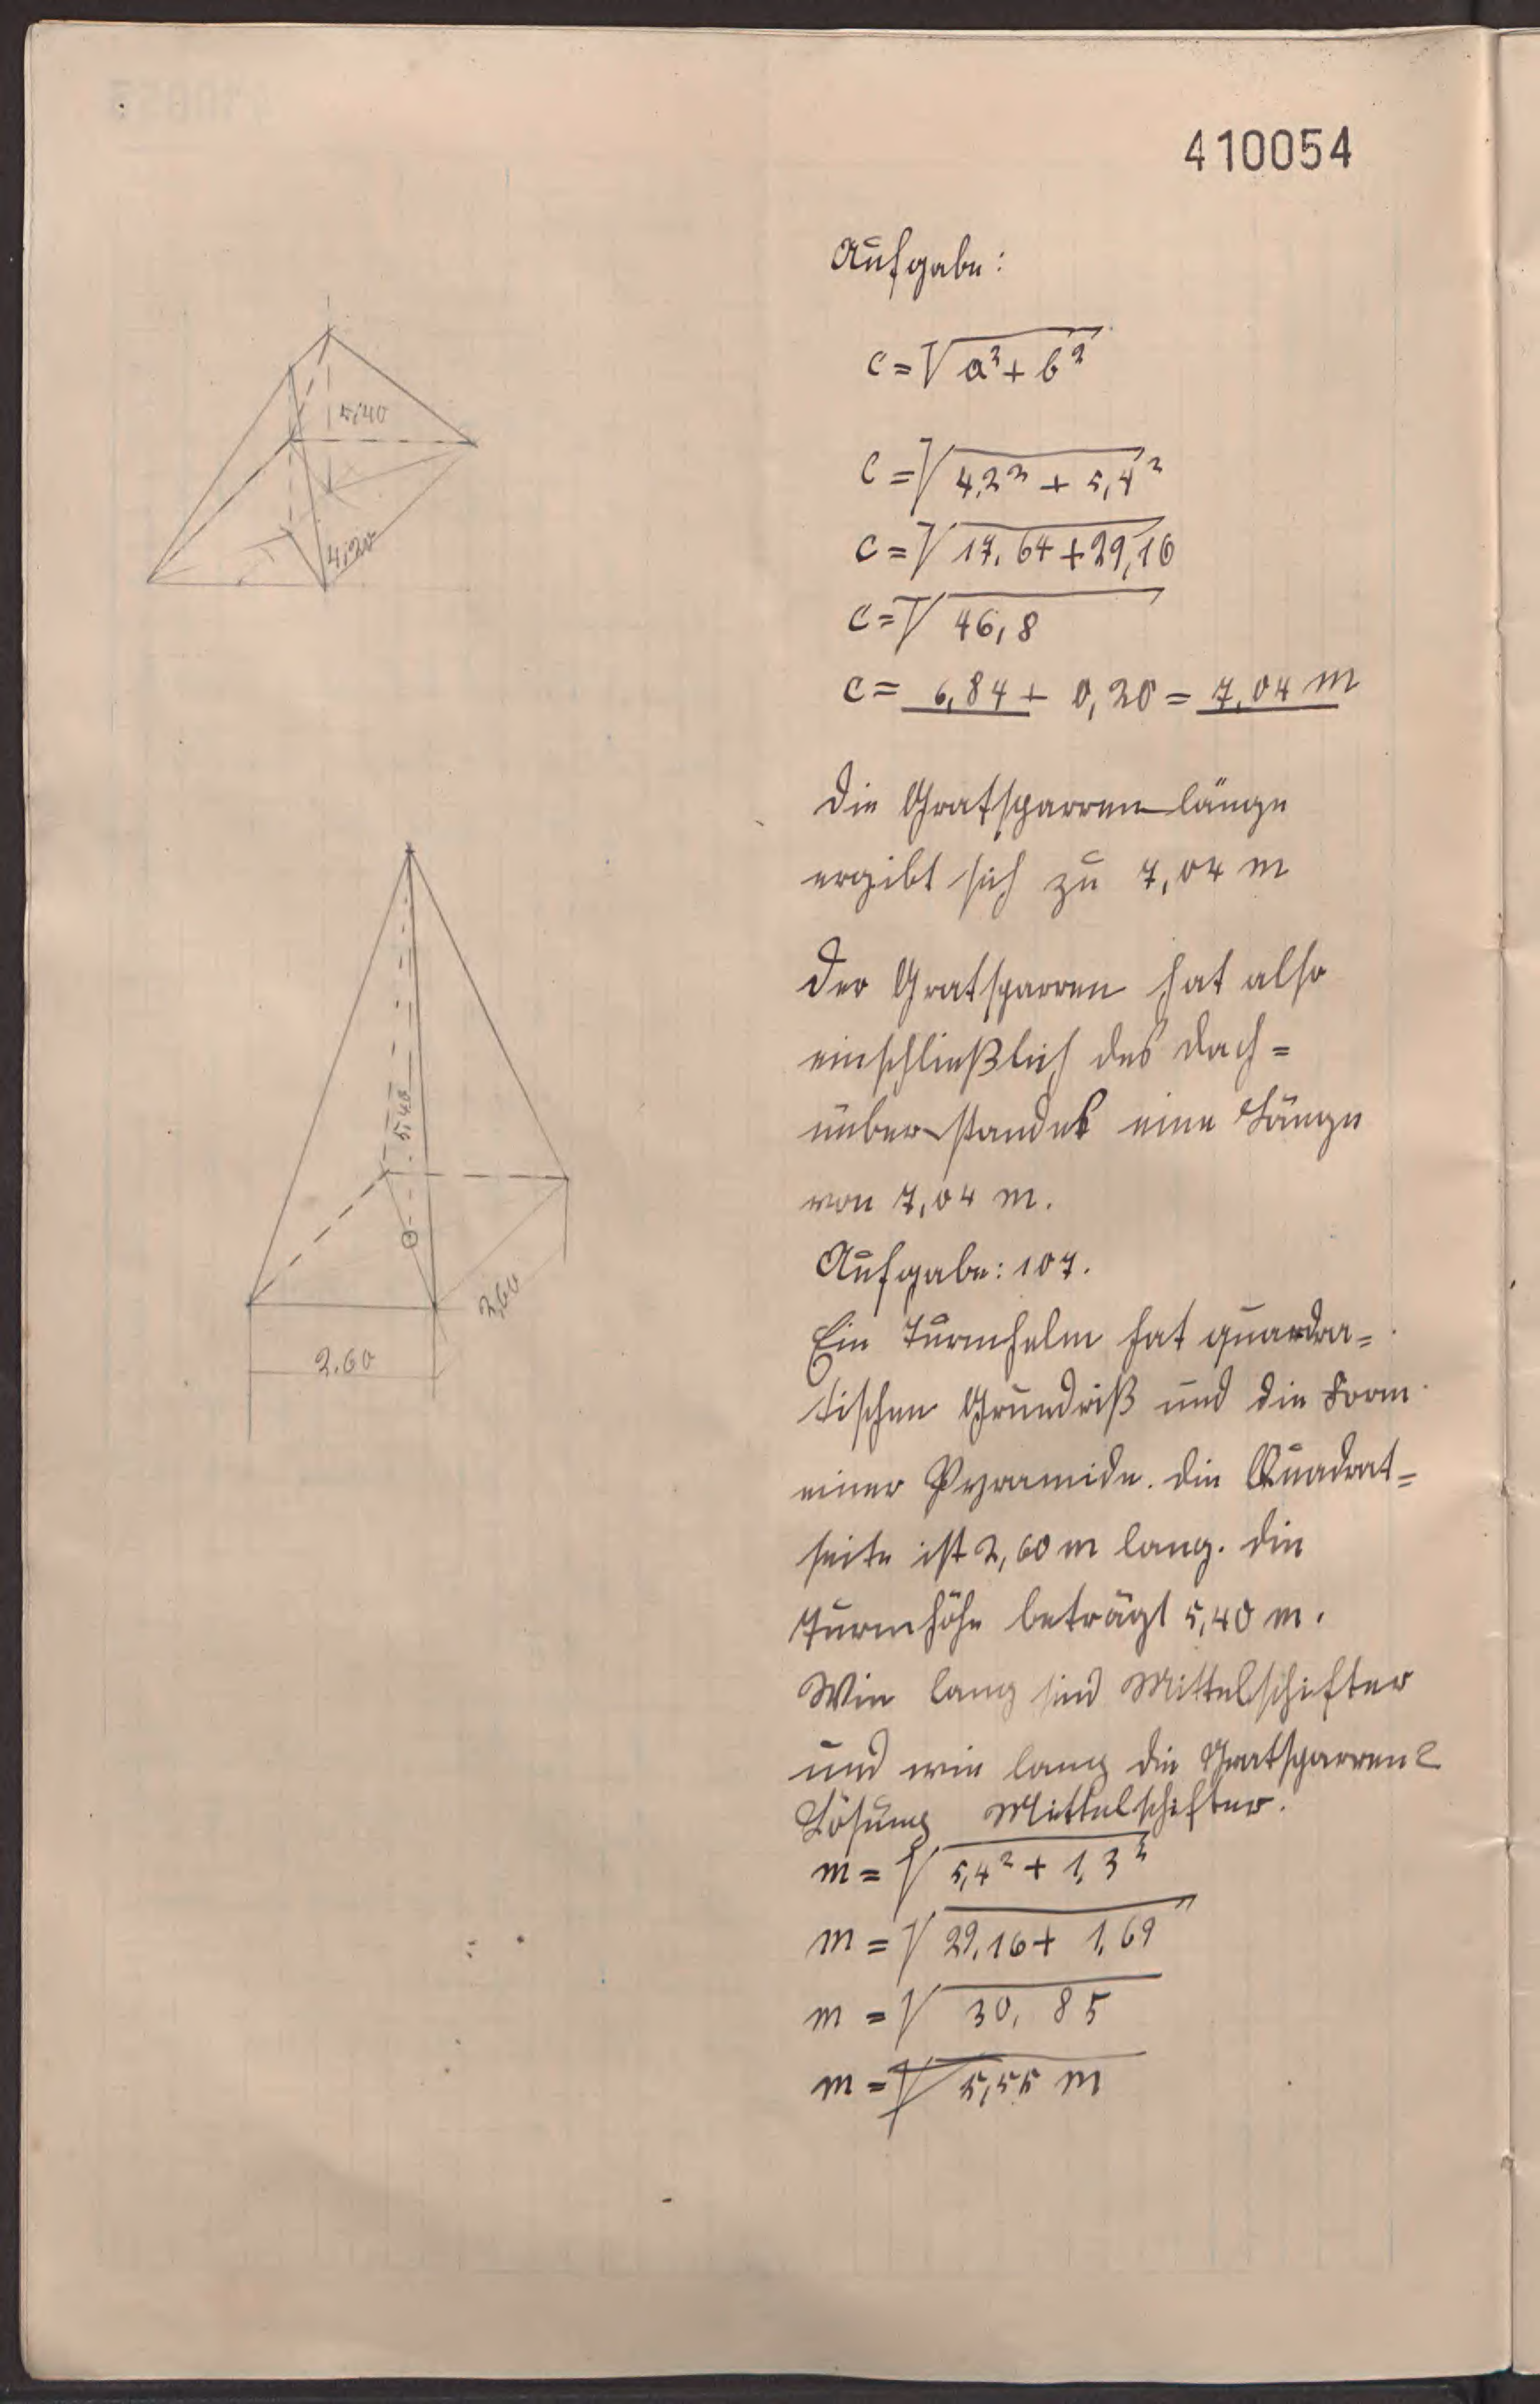 410054
Aufgabe:
c = √a² + b²
c = √4,2² + 5,4²
c = √17,64 + 29,16
c = √46,8
c = 6,84 + 0,20 = 7,04 m
5,40
4,20
Die Gratsparrenlänge
ergibt sich zu 7,04 m
Der Gratsparren hat also
einschließlich des Dach=
überstandes eine Länge
von 7,04 m.
5,40
2,60
2.60
Aufgabe: 107.
Ein Turmhelm hat quardra=
tischen Grundriß und die Form
einer Pyramide. Die Quadrat=
seite ist 2,60 m lang. Die
Turmhöhe beträgt 5,40 m.
Wie lang sind Mittelschifter
und wie lang die Gratsparren?
Lösung Mittelschifter.
m = √5,4² + 1,3²
m = √29,16 + 1,69
m = √30,85
m = 5,55 m